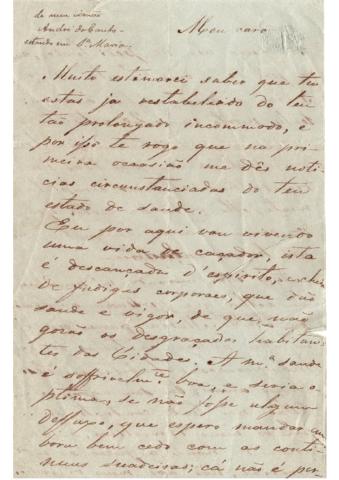 de meu irmão
André do Canto -
estando em Sta Maria.
Meu caro
Muito estimarei saber que tu
estás ja restabelecido do teu
tão prolongado incommodo, e
por isso te rogo que na pri-
meira occasião me dês noti-
cias circumstanciadas do teu
estado de saude.
Eu por aqui vou vivendo
uma vida de caçador, isto
é descançada d'espirito, e cheia
de fadigas corporaes, que dão
saude e vigor, de que não
gozão os desgraçados habitan-
tes das Cidades. A ma saude
é soffrivelmte boa, e seria o-
ptima, se não fosse algum
deffluxo, que espero mandar em-
bora bem cedo com as conti-
nuas suadeiras; cá não é pre-